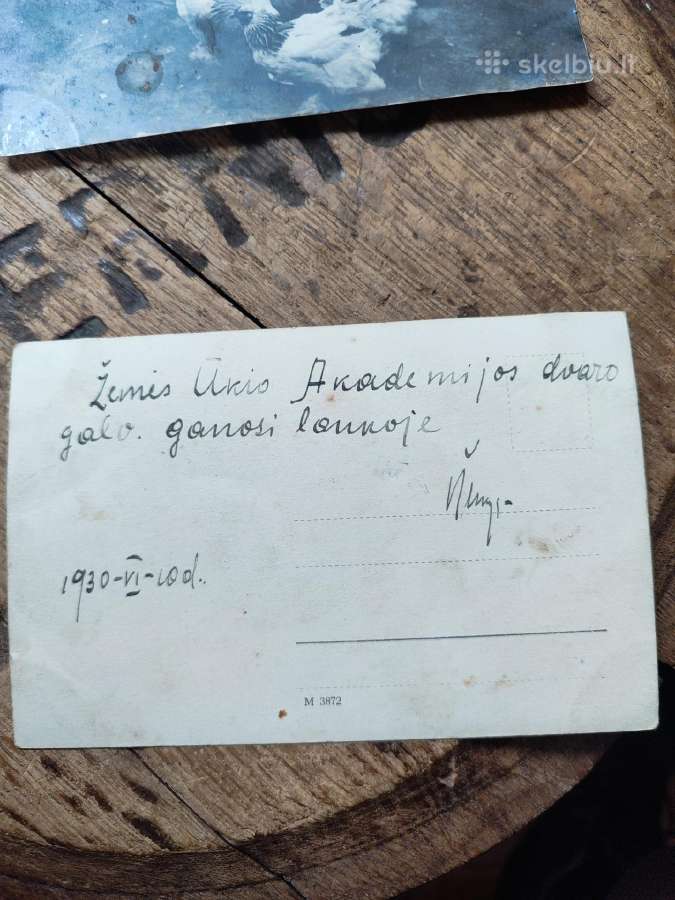 skelbiu.lt
Žemės Ūkio Akademijos dvaro
galv. ganosi laukoje
1930-VI-10d.
M 3872